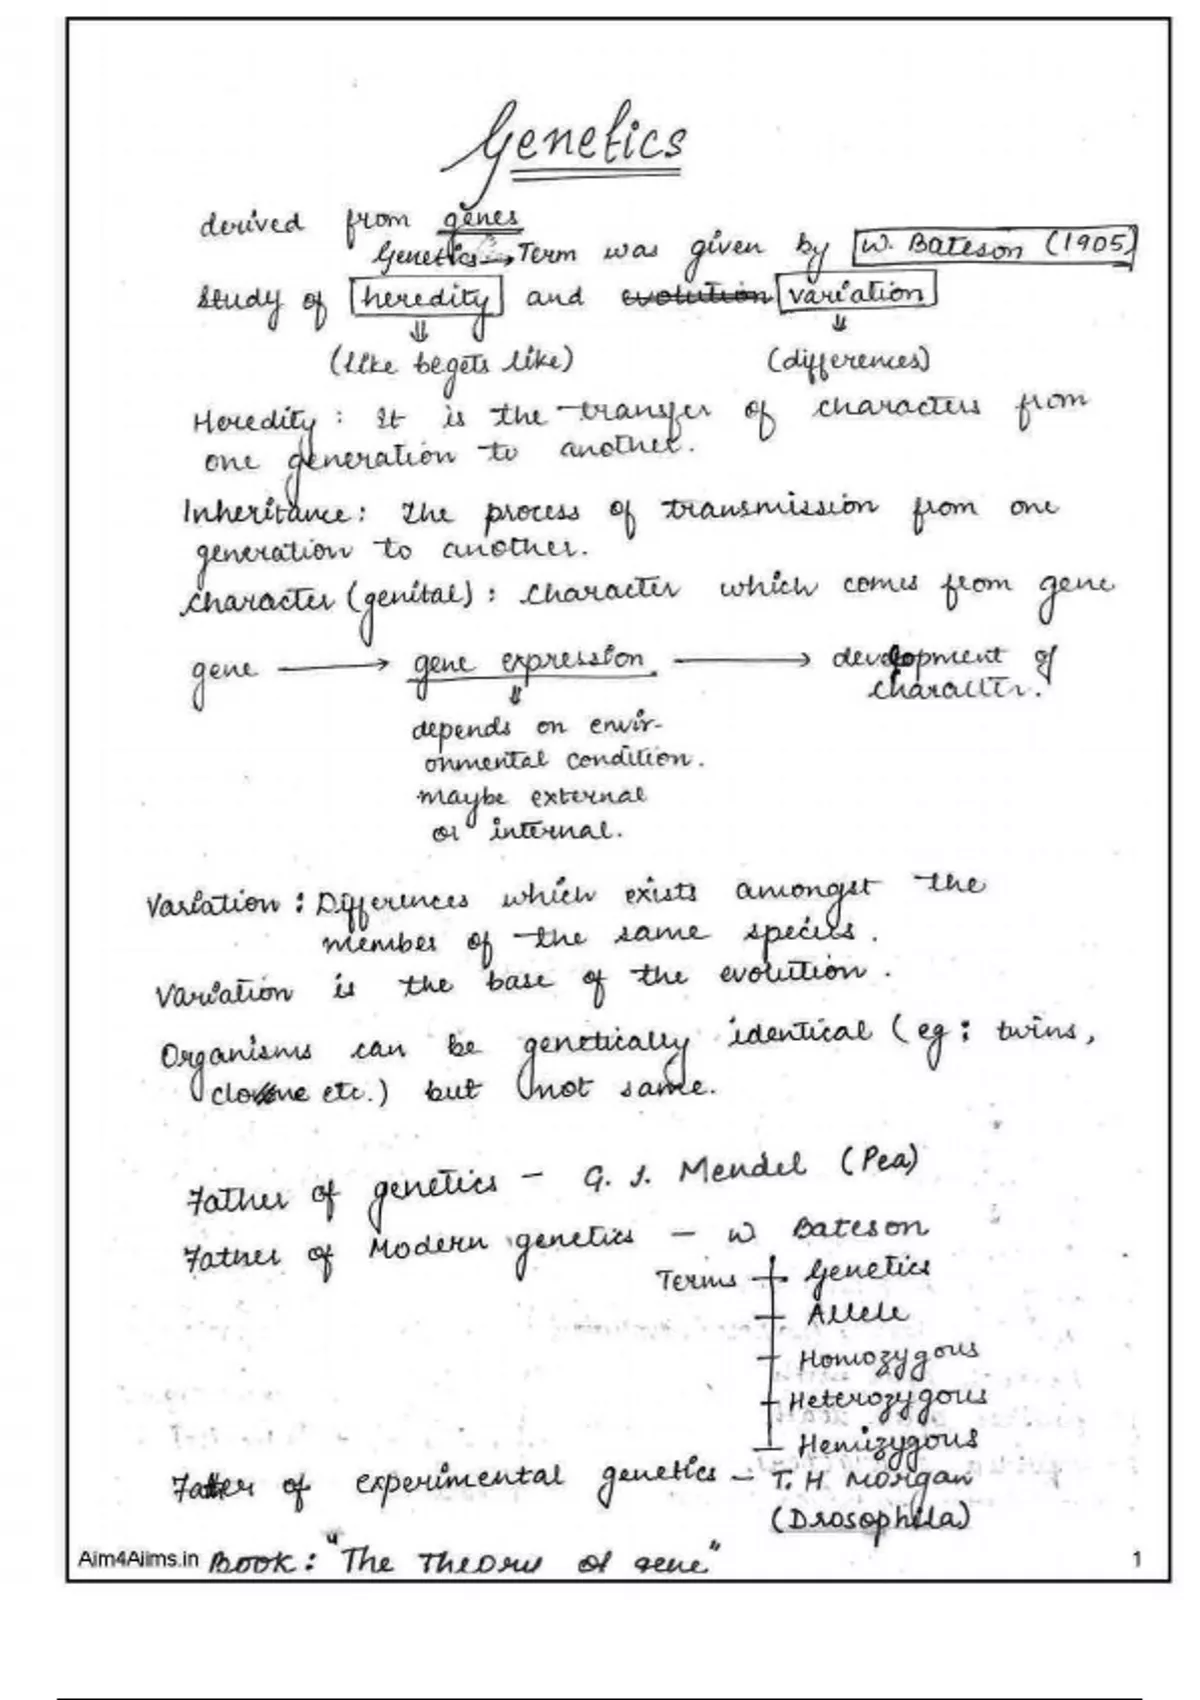 Genetics
derived from genes
Genetics → Term was given by W. Bateson (1905)
Study of heredity and evolution variation
⇓ ⇓
(like begets like) (differences)
Heredity : It is the transfer of characters from
one generation to another.
Inheritance : The process of transmission from one
generation to another.
Character (genital) : Character which comes from gene
gene → gene expression → development of
character.
⇓
depends on envir-
onmental condition.
maybe external
or internal.
Variation : Differences which exists amongst the
member of the same species.
Variation is the base of the evolution.
Organisms can be genetically identical (eg : twins,
clone etc.) but not same.
Father of genetics - G. J. Mendel (Pea)
Father of Modern genetics - W Bateson
Terms Genetics
Allele
Homozygous
Heterozygous
Hemizygous
Father of experimental genetics - T. H Morgan
(Drosophila)
Aim4Aiims.in Book : "The Theory of gene" 1